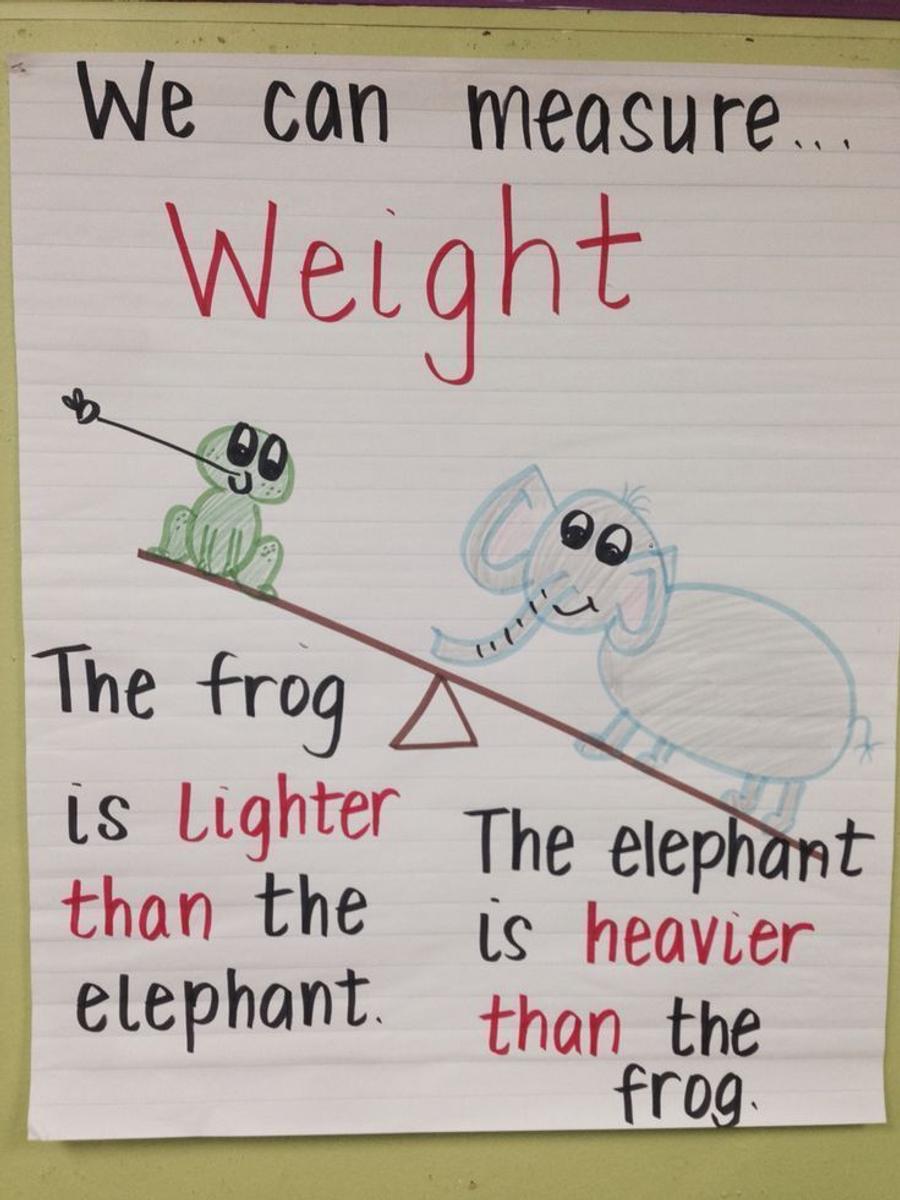 We can measure...
Weight
The frog
is Lighter
than the
elephant.
The elephant
is heavier
than the
frog.